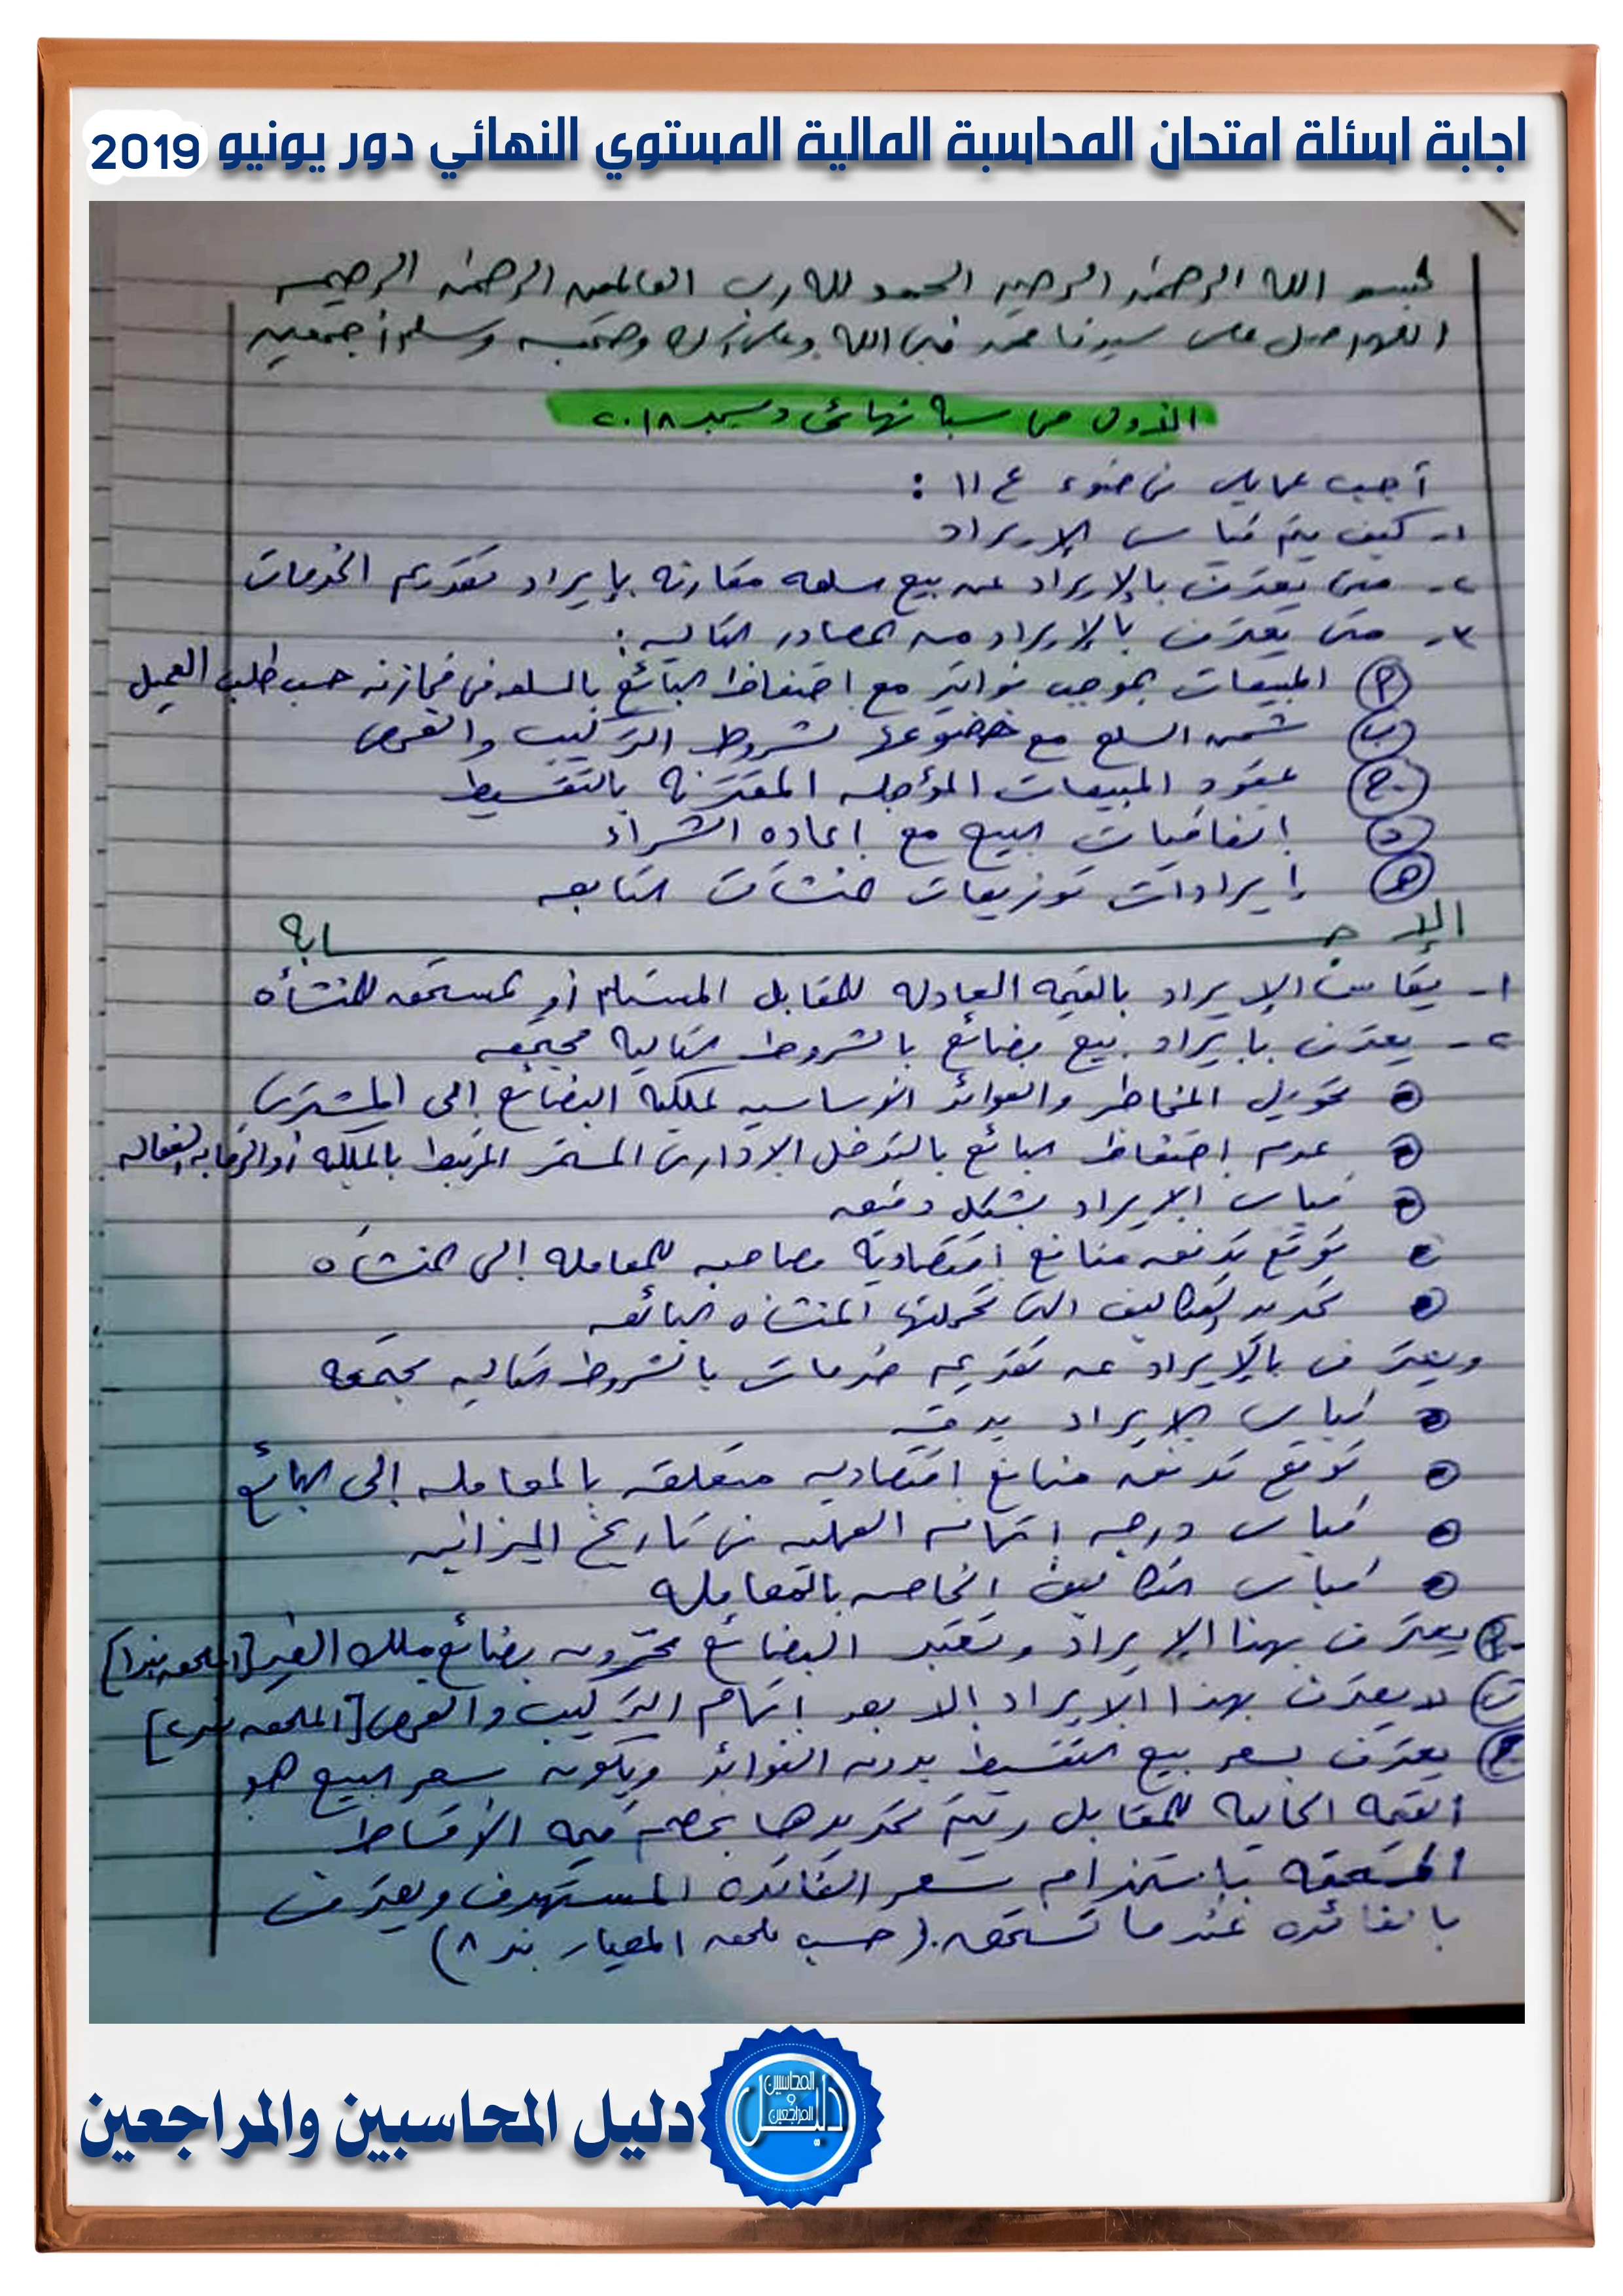 اجابة اسئلة امتحان المحاسبة المالية المستوي النهائي دور يونيو 2019
بسم الله الرحمن الرحيم الحمد لله رب العالمين الرحمن الرحيم
اللهم صل على سيدنا محمد نبي الله وعلى آله وصحبه وسلم أجمعين
الأول محاسبة نهائى ديسمبر ٢٠١٨
أجب عما يلى فى ضوء ع ١١ :
١- كيف يتم قياس الإيراد
٢- متى يعترف بالإيراد عن بيع سلعه مقارنه بإيراد تقديم الخدمات
٣- متى يعترف بالإيراد من المصادر التاليه :
أ المبيعات بموجب فواتير مع احتفاظ البائع بالسلعه فى مخازنه حسب طلب العميل
ب شحن السلع مع خضوعها لشروط التركيب والفحص
ج عقود المبيعات المؤجله المقترنه بالتقسيط
د اتفاقيات البيع مع اعاده الشراء
هـ إيرادات توزيعات منشآت التابعه
الإجـــابه
١- يقاس الإيراد بالقيمه العادله للمقابل المستلم أو المستحق للمنشأه
٢- يعترف بإيراد بيع بضائع بالشروط التاليه مجتمعه
تحويل المخاطر والعوائد الأساسيه لملكيه البضائع إلى المشترى
عدم احتفاظ البائع بالتدخل الادارى المستمر المرتبط بالملكيه أو الرقابه الفعاله
قياس الإيراد بشكل دقيق
توقع تدفق منافع اقتصاديه مصاحبه للمعامله إلى المنشاه
تحديد التكاليف التى تحملتها المنشاه البائعه
ويعترف بالإيراد عن تقديم خدمات بالشروط التاليه مجتمعه
قياس الإيراد بدقه
توقع تدفق منافع اقتصاديه متعلقه بالمعامله إلى البائع
قياس درجه اتمام العمليه فى تاريخ الميزانيه
قياس التكاليف الخاصه بالمعامله
أ- يعترف بهذا الإيراد وتعتبر البضائع مخزون بضائع ملك الغير [الملحق بند ١]
ب لا يعترف بهذا الإيراد إلا بعد اتمام التركيب والفحص [الملحق بند ٢]
ج يعترف بسعر بيع التقسيط بدون الفوائد ويكون سعر البيع هو
القيمه الحاليه للمقابل ويتم تحديدها بخصم قيمه الأقساط
المستحقه باستخدام سعر الفائده المستهدف ويعترف
بالفائده عندما تستحق. (حسب ملحق المعيار بند ٨)
دليل المحاسبين والمراجعين
دليل المحاسبين و المراجعين